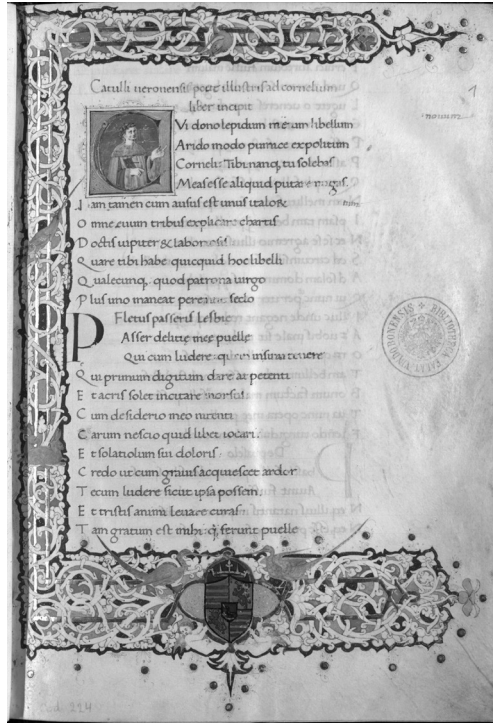 Catulli ueronensis poete illustris ad cornelium
liber incipit
C Vi dono lepidum meum libellum
Arido modo pumice expolitum
Corneli: Tibi nanq; tu solebas
Meas esse aliquid putare nugas.
I am tamen cum ausus est unus italoꝝ
O mne euum tribus explicare chartis
D octis iupiter & laboriosis
Q uare tibi habe quicquid hoc libelli
Q ualecunq; quod patrona uirgo
P lus uno maneat perenne seclo
Fletus passeris Lesbie
P Asser delitie mee puelle
Qui cum ludere que in sinu tenere
Q ui primum digitum dare at petenti
E t acris solet incitare morsus
C um desiderio meo nitenti
C arum nescio quid libet iocari.
E t solatiolum sui doloris
C redo ut cum grauis acquiescet ardor
T ecum ludere sicut ipsa possem
E t tristis animi leuare curas
T am gratum est mihi q̃ ferunt puelle
1
nouum
Cod. 224